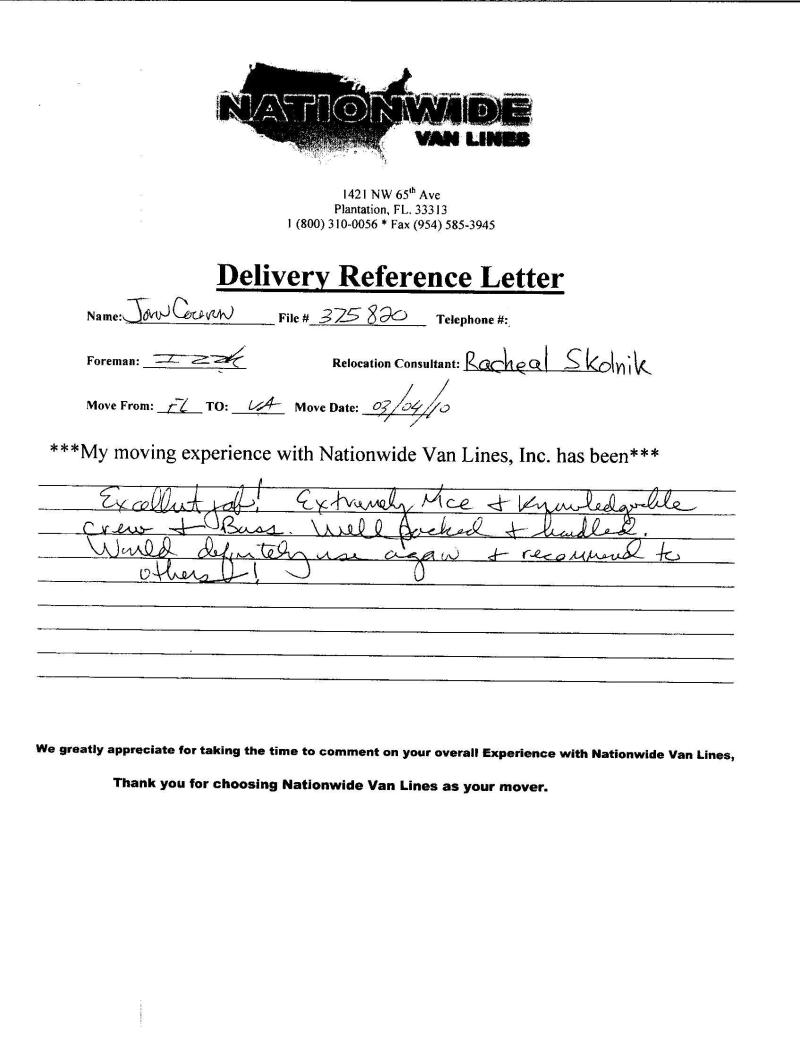 NATIONWIDE
VAN LINES
1421 NW 65th Ave
Plantation, FL. 33313
1 (800) 310-0056 * Fax (954) 585-3945
Delivery Reference Letter
Name: File # 375820 Telephone #:
Foreman: Relocation Consultant: Racheal Skolnik
Move From: FL TO: VA Move Date: 03/04/10
***My moving experience with Nationwide Van Lines, Inc. has been***
Excellent job! Extremely Nice + Knowledgeable
crew + Boss. Well packed + handled.
Would definitely use again + recommend to
others!
We greatly appreciate for taking the time to comment on your overall Experience with Nationwide Van Lines,
Thank you for choosing Nationwide Van Lines as your mover.